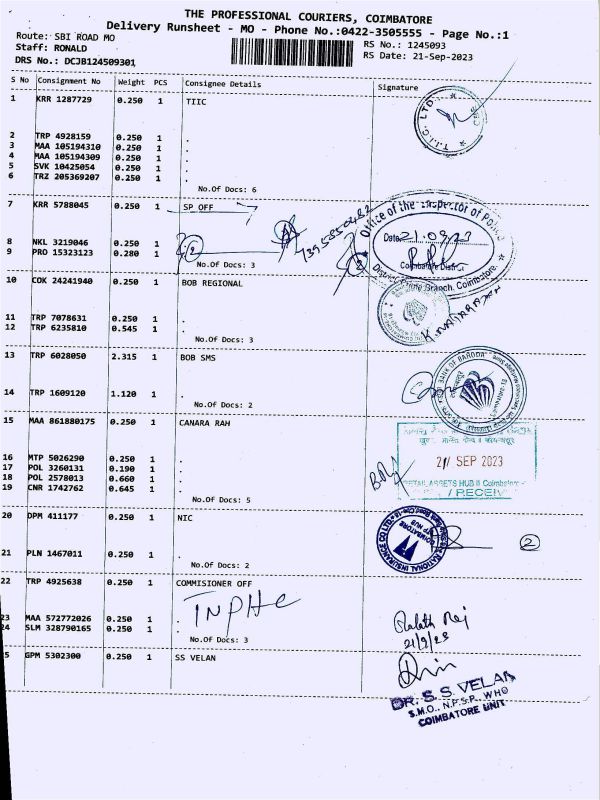 THE PROFESSIONAL COURIERS, COIMBATORE
Delivery Runsheet - MO - Phone No.:0422-3505555 - Page No.:1
Route: SBI ROAD MO
RS No.: 1245093
Staff: RONALD
RS Date: 21-Sep-2023
DRS No.: DCJB124509301
S No Consignment No Weight PCS Consignee Details Signature
1 KRR 1287729 0.250 1 TIIC
T.I.I.C. LTD.
2 TRP 4928159 0.250 1 .
3 MAA 105194310 0.250 1 .
4 MAA 105194309 0.250 1 .
5 SVK 10425054 0.250 1 .
6 TRZ 205369207 0.250 1 .
No.Of Docs: 6
7 KRR 5788045 0.250 1 SP OFF
Office of the Inspector of Police
Date 21.09.23
Coimbatore District
Branch, Coimbatore.
8 NKL 3219046 0.250 1
2
9 PRO 15323123 0.280 1
No.Of Docs: 3
10 COK 24241940 0.250 1 BOB REGIONAL
11 TRP 7078631 0.250 1 .
12 TRP 6235810 0.545 1 .
No.Of Docs: 3
13 TRP 6028050 2.315 1 BOB SMS
BANK OF BARODA
14 TRP 1609120 1.120 1 .
No.Of Docs: 2
15 MAA 861880175 0.250 1 CANARA RAH
21 SEP 2023
RETAIL ASSETS HUB II Coimbatore
16 MTP 5026290 0.250 1 .
17 POL 3260131 0.190 1 .
18 POL 2578013 0.660 1 .
19 CNR 1742762 0.645 1 .
No.Of Docs: 5
20 DPM 411177 0.250 1 NIC
NATIONAL INSURANCE CO LTD
COIMBATORE
2
21 PLN 1467011 0.250 1 .
No.Of Docs: 2
22 TRP 4925638 0.250 1 COMMISIONER OFF
23 MAA 572772026 0.250 1 .
24 SLM 328790165 0.250 1 .
No.Of Docs: 3
21/9/23
25 GPM 5302300 0.250 1 SS VELAN
DR. S.S. VELAN
S.M.O., N.P.S.P., WHO
COIMBATORE UNIT